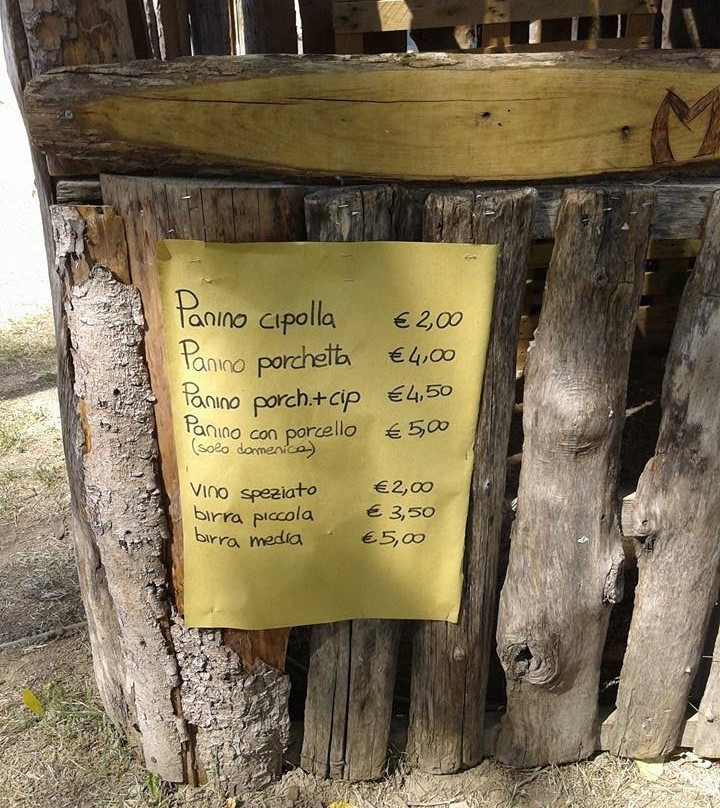 M
Panino cipolla € 2,00
Panino porchetta € 4,00
Panino porch.+cip € 4,50
Panino con porcello € 5,00
(solo domenica)
vino speziato € 2,00
birra piccola € 3,50
birra media € 5,00